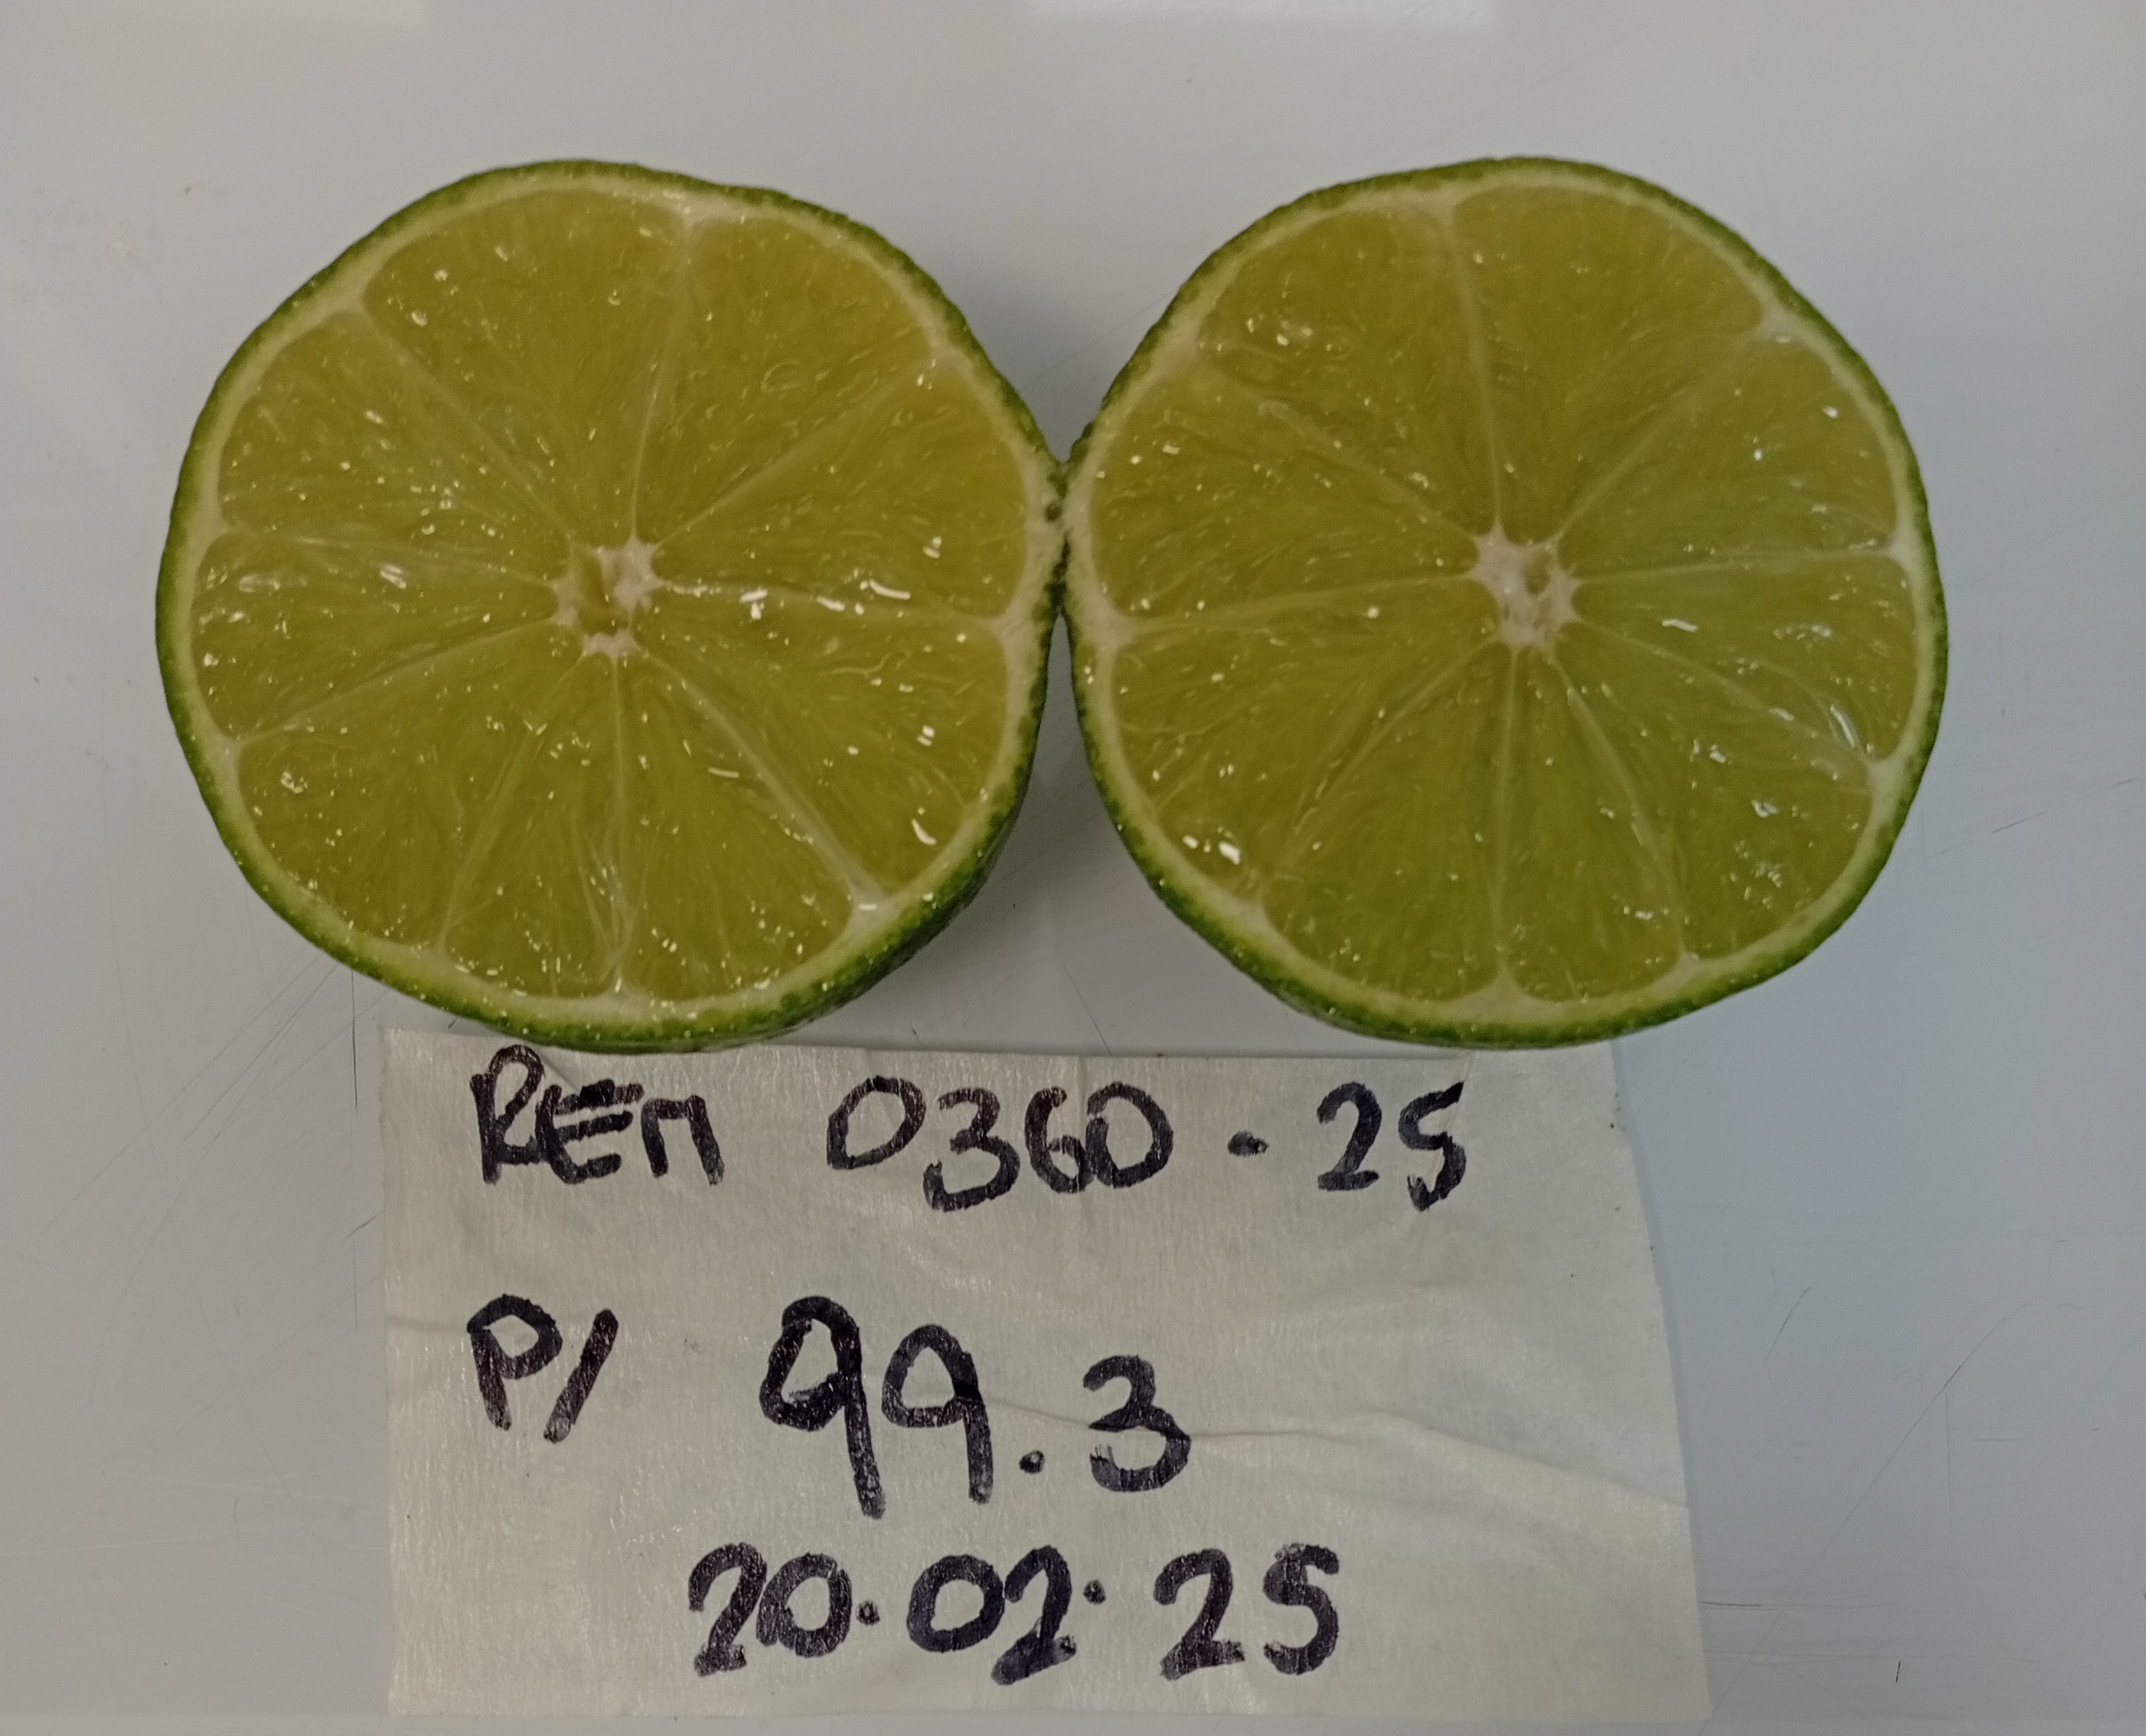 REM 0360-25
P/ 99.3
20.02.25